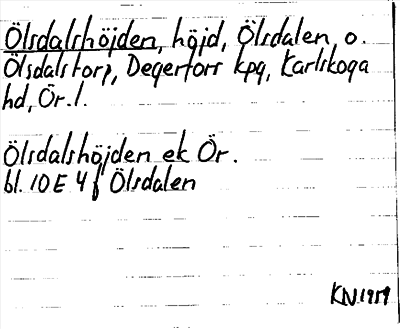 Ölsdalshöjden, höjd, Ölsdalen o.
Ölsdalstorp, Degerfors kpg, Karlskoga
hd, Ör. l.
Ölsdalshöjden ek Ör.
bl. 10E 4f Ölsdalen